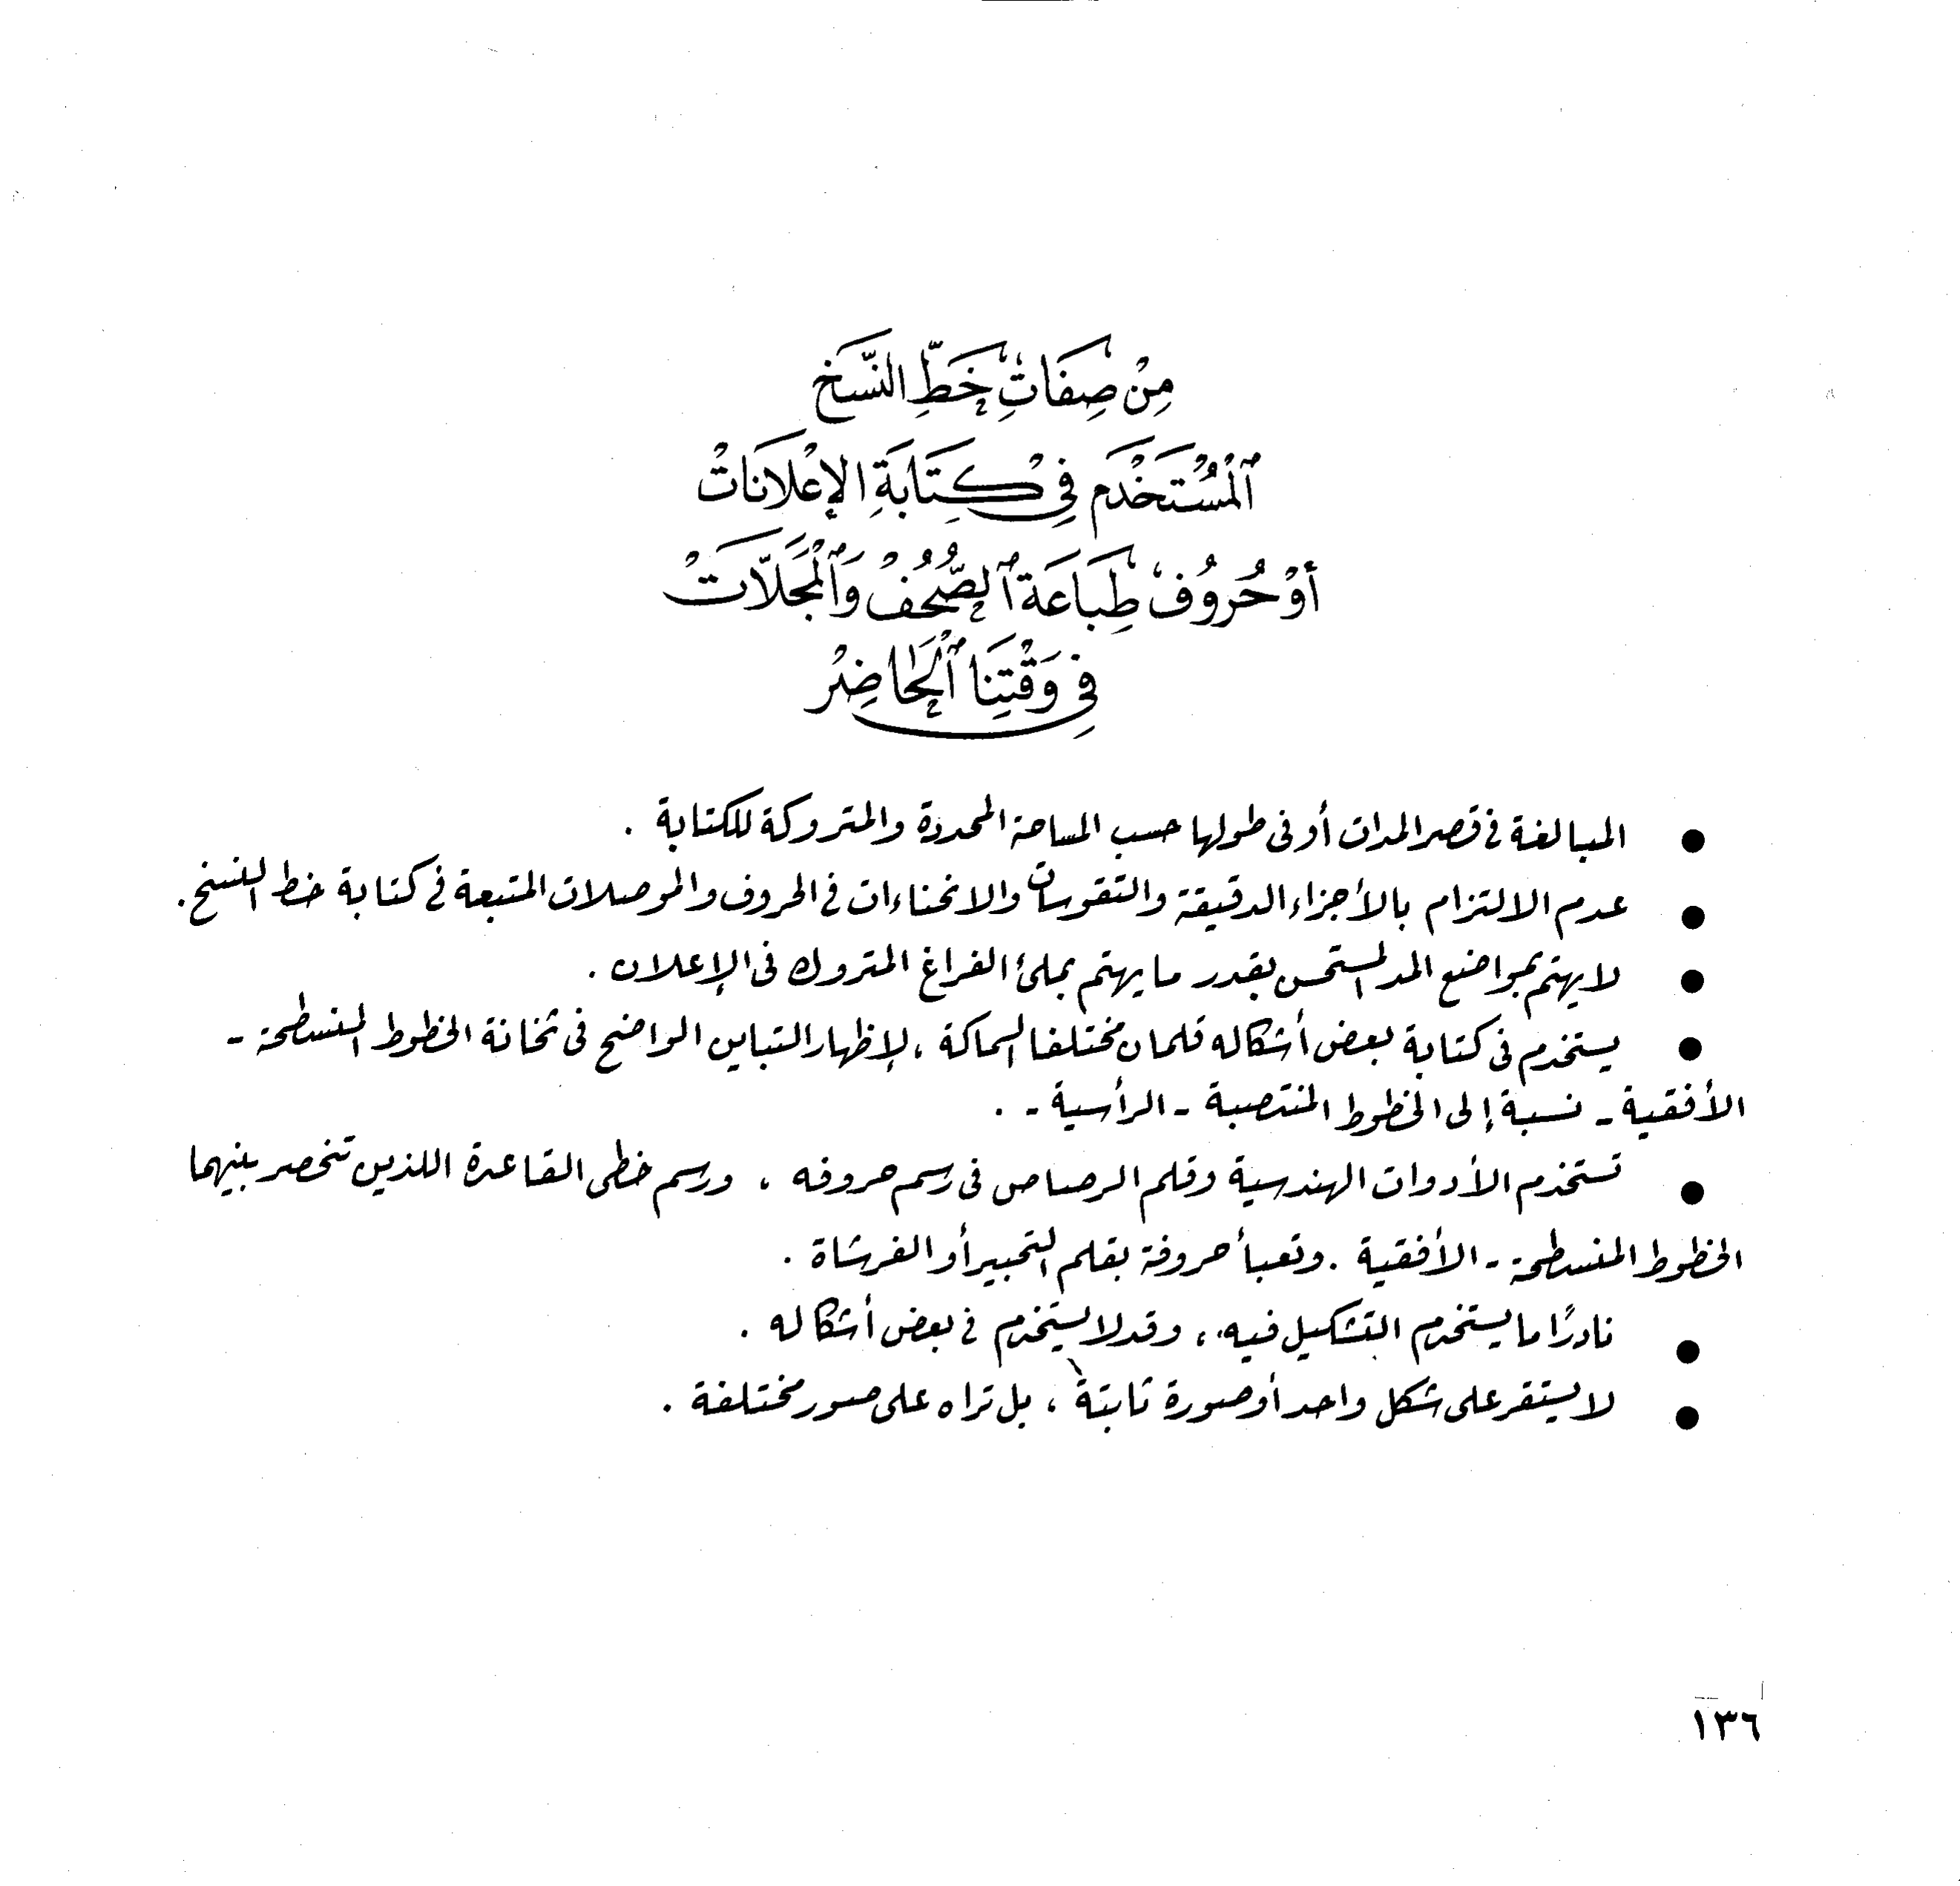 مِنْ صِفَاتِ خَطِّ النَّسَخ
ٱلْمُسْتَخْدَم فِي كِتَابَةِ الإِعْلَانَاتْ
أَوْ حُرُوُفْ طِبَاعَة ٱلصُّحُفْ وَٱلْمَجَلَّاتْ
فِي وَقْتِنَا ٱلْحَاضِرْ
● المبالغة في قصر المدات أو فى طولها حسب المساحة المحددة والمتروكة للكتابة .
● عدم الالتزام بالأجزاء الدقيقة والتقوسات والانحناءات في الحروف والموصلات المتبعة في كتابة خط النسخ .
● لا يهتم بمواضع المد المستحسن بقدر ما يهتم بملئ الفراغ المتروك فى الإعلان .
● يستخدم فى كتابة بعض أشكاله قلمان مختلفا السماكة ، لإظهار التباين الواضح فى ثخانة الخطوط المنسطحة -
الأفقية - نسبة إلى الخطوط المنتصبة - الرأسية - .
● تستخدم الأدوات الهندسية وقلم الرصاص فى رسم حروفه ، ورسم خطى القاعدة اللذين تنحصر بينهما
الخطوط المنسطحة - الأفقية . وتعبأ حروفة بقلم التحبير أو الفرشاة .
● نادرًا ما يستخدم التشكيل فيه ، وقد لا يستخدم في بعض أشكاله .
● لا يستقر على شكل واحد أو صورة ثابتة ، بل تراه على صور مختلفة .
١٣٦